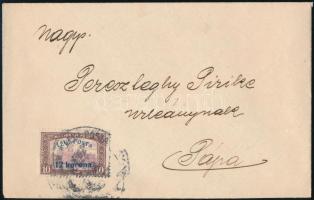 Nagys.
Pereszleghy Pirike
urleánynak
Pápa
LÉGI POSTA
12 korona
10